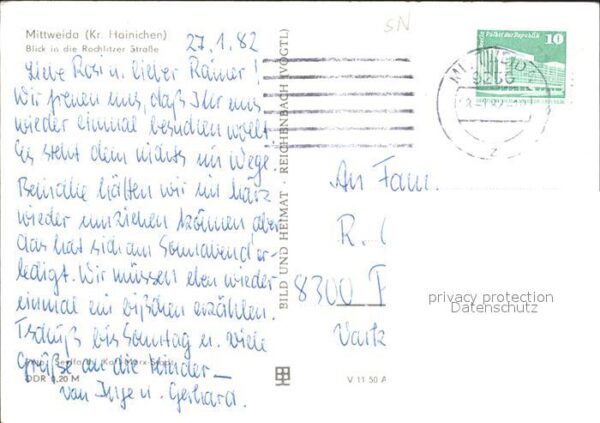 Mittweida (Kr. Hainichen)
Blick in die Rochlitzer Straße
27.1.82
SN
Liebe Rosi u. lieber Rainer!
Wir freuen uns, daß Ihr uns
wieder einmal besuchen wollt.
Es steht dem nichts im Wege.
Beinahe hätten wir im März
wieder umziehen können, aber
das hat sich am Sonnabend er-
ledigt. Wir müssen eben wieder
einmal ein bißchen erzählen.
Tschüß bis Sonntag u. viele
Grüße an die Kinder –
von Inge u. Gerhard.
Karl-Marx-Stadt
DDR 0,20 M
BILD UND HEIMAT · REICHENBACH (VOGTL)
V 11 50 A
Palast der Republik
10
9250
z
An Fam.
R. (
8300
privacy protection
Datenschutz